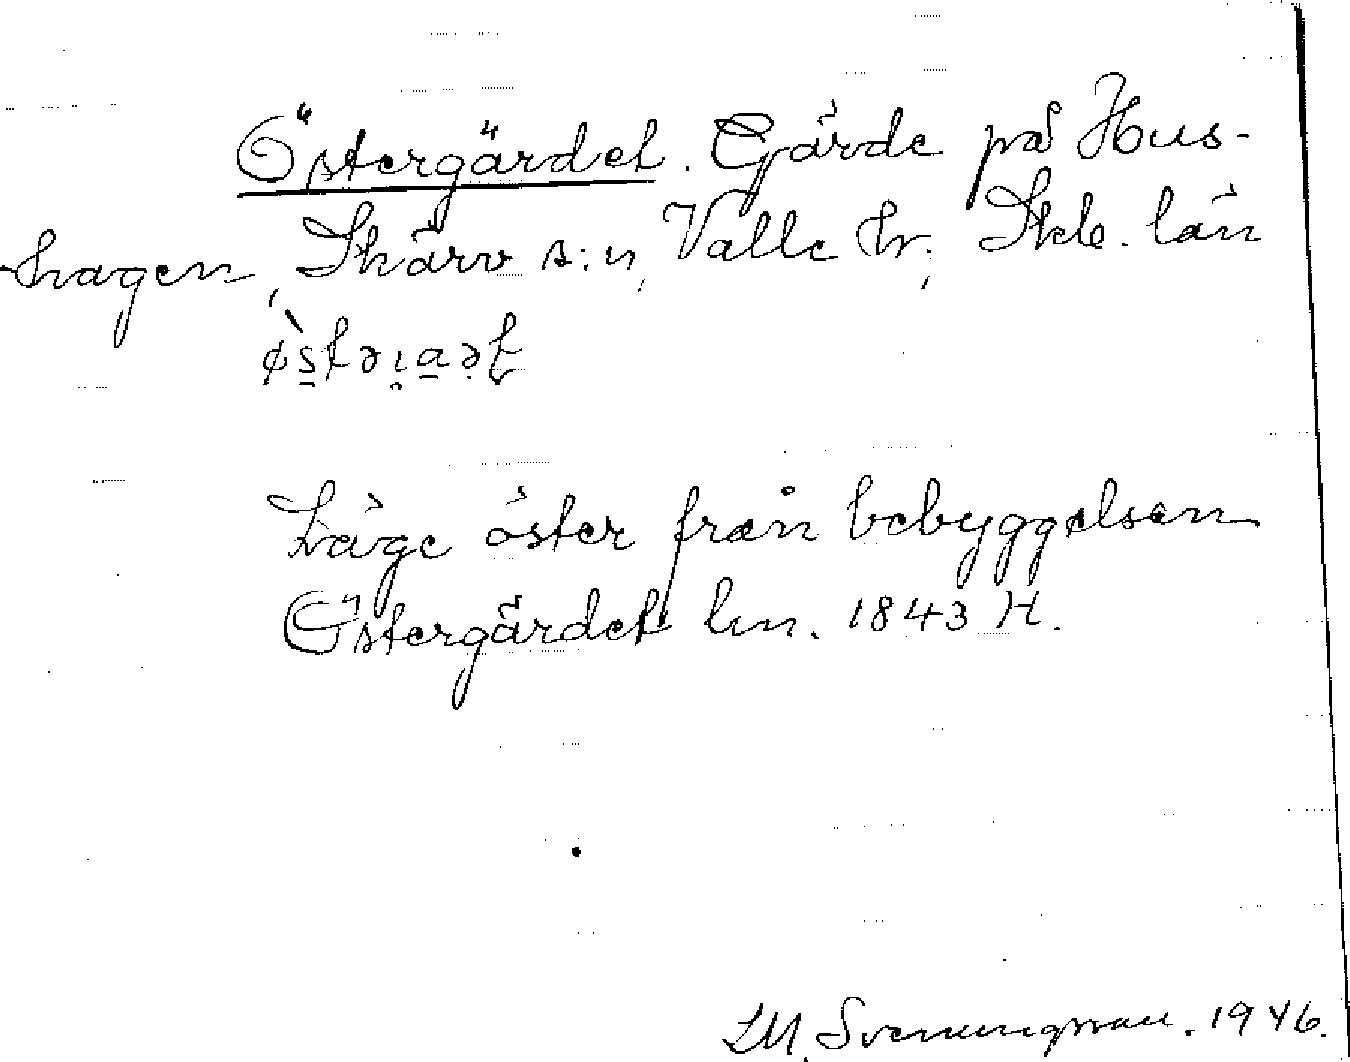 Östergärdet. Gärde på Hus-
hagen, Skärv s:n, Valle hr, Skb. län
Läge öster från bebyggelsen
Östergärdet lm. 1843 H.
LM. Svenungsson. 1946.